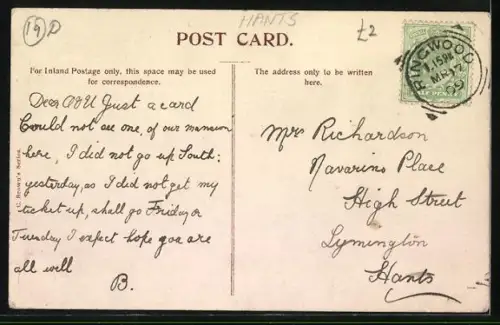 19D
HANTS
£2
POST CARD.
For Inland Postage only, this space may be used
for correspondence.
The address only to be written
here.
RINGWOOD
15PM
MR 17
09
Dear A&U Just a card
Could not see one, of our mansion
here, I did not go up South:
yesterday, as I did not get my
ticket up, shall go Friday or
Tuesday I expect hope you are
all well
B.
Mrs Richardson
Navarino Place
High Street
Lymington
Hants
Brown's Series.